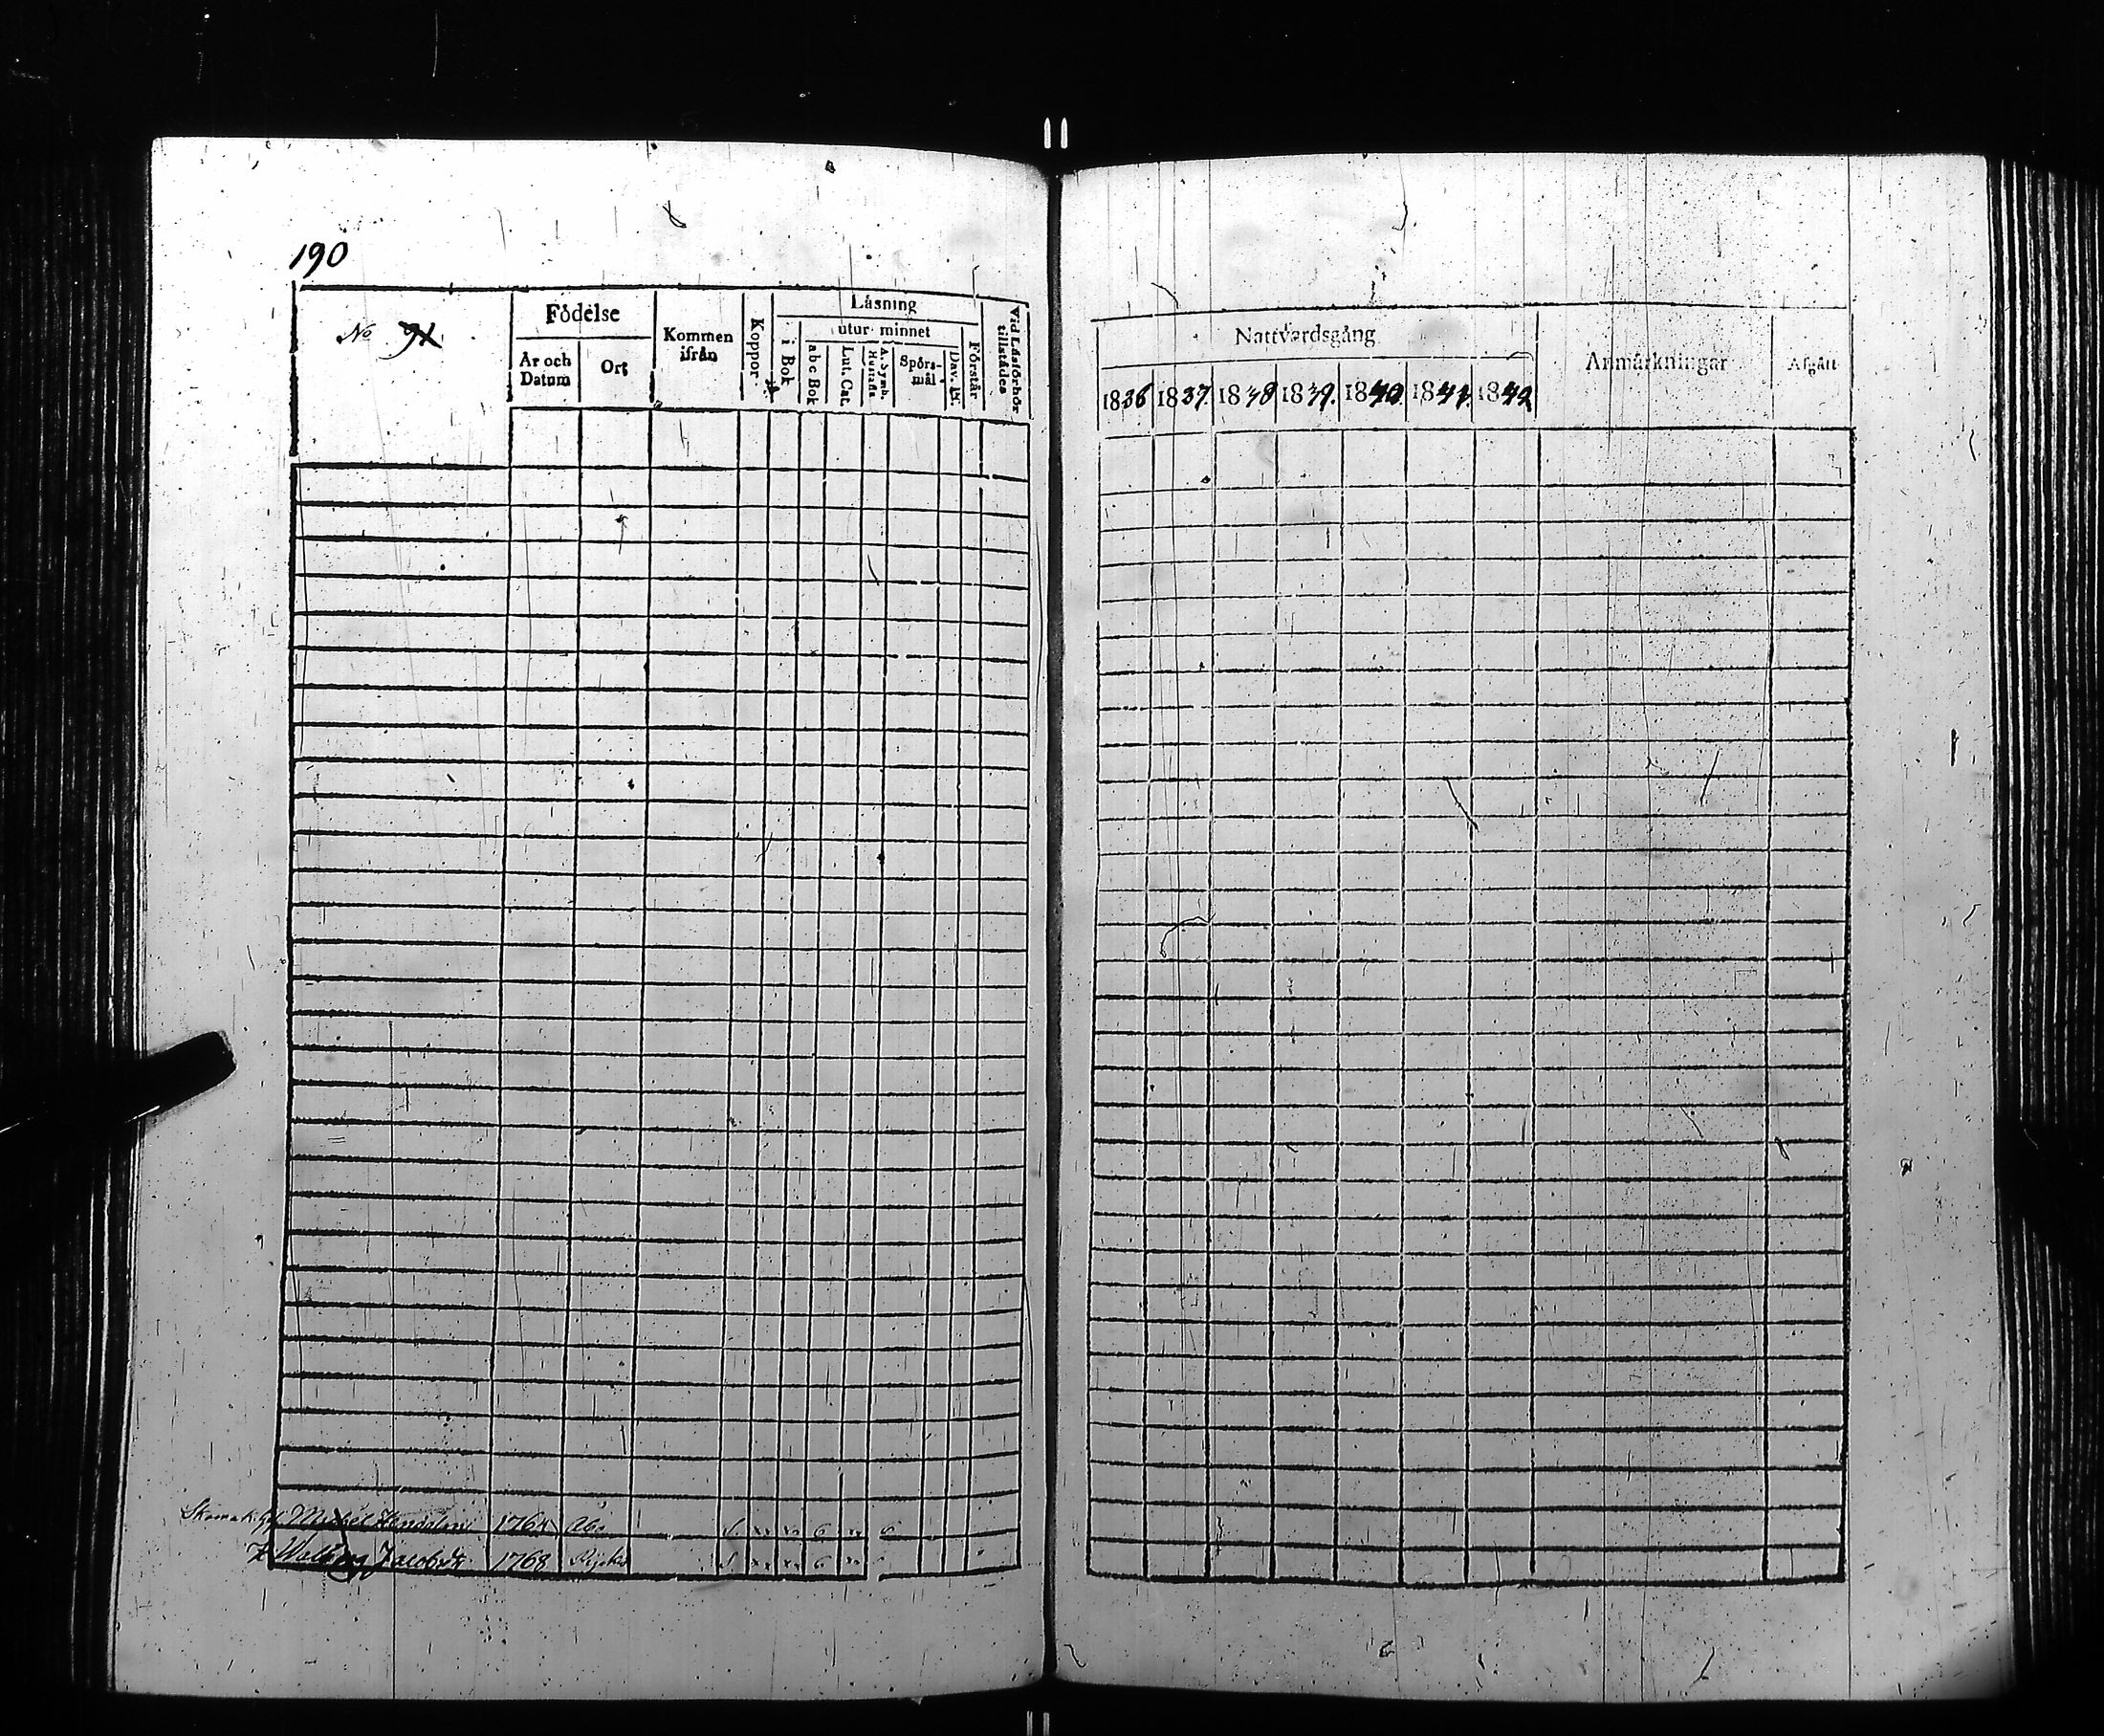 190
No 91
Födelse
År och Datum
Ort
Kommen ifrån
Koppor
Läsning
i Bok
utur minnet
abc Bok
Lut. Cat.
A. Symb. Hustafla
Spörsmål
Dav. Ps.
Förstår
Vid Läsförhör tillstädes
Nattvardsgång
1836 1837. 1838 1839. 1840. 1841. 1842
Anmärkningar
Afgått
Michel 1764 Åbo
H. Walborg Jacobsdr 1768